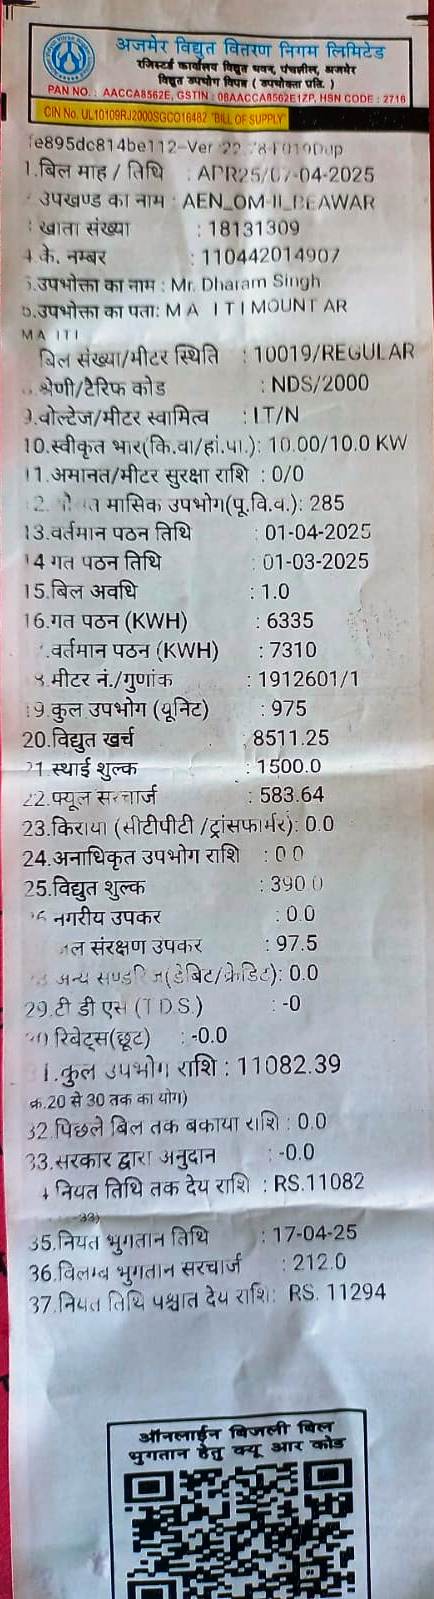 अजमेर विद्युत वितरण निगम लिमिटेड
रजिस्टर्ड कार्यालय विद्युत भवन, पंचशील, अजमेर
विद्युत उपयोग विपत्र ( उपभोक्ता प्रति. )
PAN NO. : AACCA8562E, GSTIN : 08AACCA8562E1ZP, HSN CODE : 2716
CIN No. UL10109RJ2000SGCO16482 "BILL OF SUPPLY"
fe895dc814be112-Ver
1.बिल माह / तिथि : APR25/07-04-2025
उपखण्ड का नाम : AEN_OM-II_BEAWAR
खाता संख्या : 18131309
4.के. नम्बर : 110442014907
5.उपभोक्ता का नाम : Mr. Dharam Singh
6.उपभोक्ता का पता: M A I T I MOUNT AR
M A I T I
बिल संख्या/मीटर स्थिति : 10019/REGULAR
श्रेणी/टैरिफ कोड : NDS/2000
9.वोल्टेज/मीटर स्वामित्व : IT/N
10.स्वीकृत भार(कि.वा/हां.पा.): 10.00/10.0 KW
11.अमानत/मीटर सुरक्षा राशि : 0/0
मासिक उपभोग(पू.वि.व.): 285
13.वर्तमान पठन तिथि : 01-04-2025
14 गत पठन तिथि : 01-03-2025
15.बिल अवधि : 1.0
16.गत पठन (KWH) : 6335
.वर्तमान पठन (KWH) : 7310
.मीटर नं./गुणांक : 1912601/1
19.कुल उपभोग (यूनिट) : 975
20.विद्युत खर्च : 8511.25
21.स्थाई शुल्क : 1500.0
22.फ्यूल सरचार्ज : 583.64
23.किराया (सीटीपीटी /ट्रांसफार्मर): 0.0
24.अनाधिकृत उपभोग राशि : 0.0
25.विद्युत शुल्क : 390.0
नगरीय उपकर : 0.0
जल संरक्षण उपकर : 97.5
अन्य (डेबिट/क्रेडिट): 0.0
29.टी डी एस (T.D.S.) : -0
30 रिबेट्स(छूट) : -0.0
31.कुल उपभोग राशि : 11082.39
क्र.20 से 30 तक का योग)
32.पिछले बिल तक बकाया राशि : 0.0
33.सरकार द्वारा अनुदान : -0.0
नियत तिथि तक देय राशि : RS.11082
33)
35.नियत भुगतान तिथि : 17-04-25
36.विलम्ब भुगतान सरचार्ज : 212.0
37.नियत तिथि पश्चात देय राशि: RS. 11294
ऑनलाईन बिजली बिल
भुगतान हेतु क्यू आर कोड